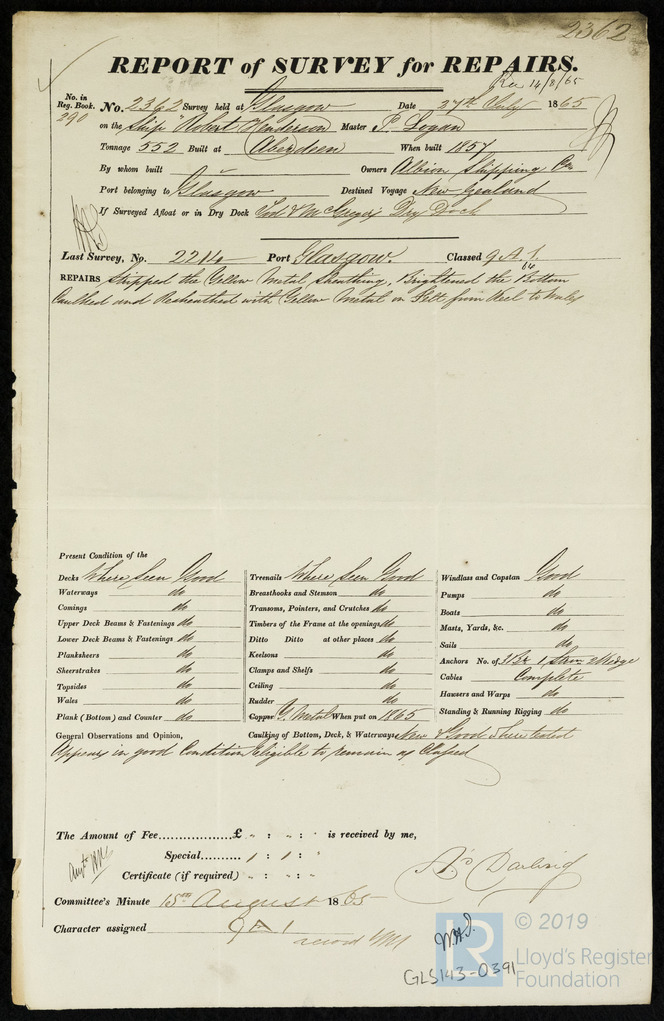 2362
REPORT of SURVEY for REPAIRS.
Rec 14/8/65
No. in
Reg. Book.
290
No. 2362 Survey held at Glasgow Date 27th July 1865
on the Ship "Robert Henderson Master P. Logan
Tonnage 552 Built at Aberdeen When built 1857
By whom built Owners Albion Shipping Co
Port belonging to Glasgow Destined Voyage New Zealand
If Surveyed Afloat or in Dry Dock Tod & McGregor Dry Dock
Last Survey, No. 2214 Port Glasgow. Classed 9 A 1.
64
REPAIRS Stripped the Yellow Metal Sheathing, Brightened the Bottom
Caulked and Resheathed with Yellow Metal on Felt from Keel to Wales
Present Condition of the
Decks Where Seen Good
Waterways do
Comings do
Upper Deck Beams & Fastenings do
Lower Deck Beams & Fastenings do
Planksheers do
Sheerstrakes do
Topsides do
Wales do
Plank (Bottom) and Counter do
Treenails Where Seen Good
Breasthooks and Stemson do
Transoms, Pointers, and Crutches do
Timbers of the Frame at the openings do
Ditto Ditto at other places do
Keelsons do
Clamps and Shelfs do
Ceiling do
Rudder do
Copper Y. Metal When put on 1865
Windlass and Capstan Good
Pumps do
Boats do
Masts, Yards, &c. do
Sails do
Anchors No. of 3 Br 1 Strm 2 Kedge
Cables Complete
Hausers and Warps do
Standing & Running Rigging do
General Observations and Opinion, Caulking of Bottom, Deck, & Waterways New & Good
Appears in good Condition Eligible to remain as Classed
The Amount of Fee..................£ " : " : " is received by me,
Special.......... " : " : "
Certificate (if required) " : " : "
A. Darling
Committee's Minute 15th August 1865
Character assigned 9 A 1
GLS143-0391
LR
© 2019
Lloyd's Register
Foundation